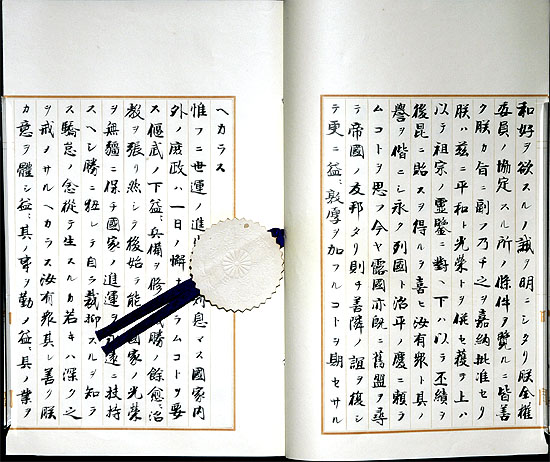 和好ヲ欲スルノ誠ヲ明ニシタリ朕全權
委員ノ協定スル所ノ條件ヲ覽ルニ皆善
ク朕カ旨ニ副フ乃チ之ヲ嘉納批准セリ
朕ハ茲ニ平和ト光榮トヲ併セ獲テ上ハ
以テ祖宗ノ靈鑒ニ對ヘ下ハ以テ丕績ヲ
後昆ニ貽スヲ得ルヲ喜ヒ汝有衆ト其ノ
譽ヲ偕ニシ永ク列國ト治平ノ慶ニ賴ラ
ムコトヲ思フ今ヤ露國亦既ニ舊盟ヲ尋
テ帝國ノ友邦タリ則チ善隣ノ誼ヲ復シ
テ更ニ益〻敦厚ヲ加フルコトヲ期セサル
ヘカラス
惟フニ世運ノ進刻息マス國家内
外ノ庶政ハ一日ノ懈ラムコトヲ要
ス偃武ノ下益〻兵備ヲ修勝ノ餘愈治
教ヲ張リ然シテ後始テ能家ノ光榮
ヲ無疆ニ保チ國家ノ進運ヲ遠ニ扶持
スヘシ勝ニ狃レテ自ラ裁抑スルヲ知ラ
ス驕怠ノ念從テ生スルカ若キハ深ク之
ヲ戒メサルヘカラス汝有衆其レ善ク朕
カ意ヲ體シ益〻其ノ事ヲ勤メ益〻其ノ業ヲ